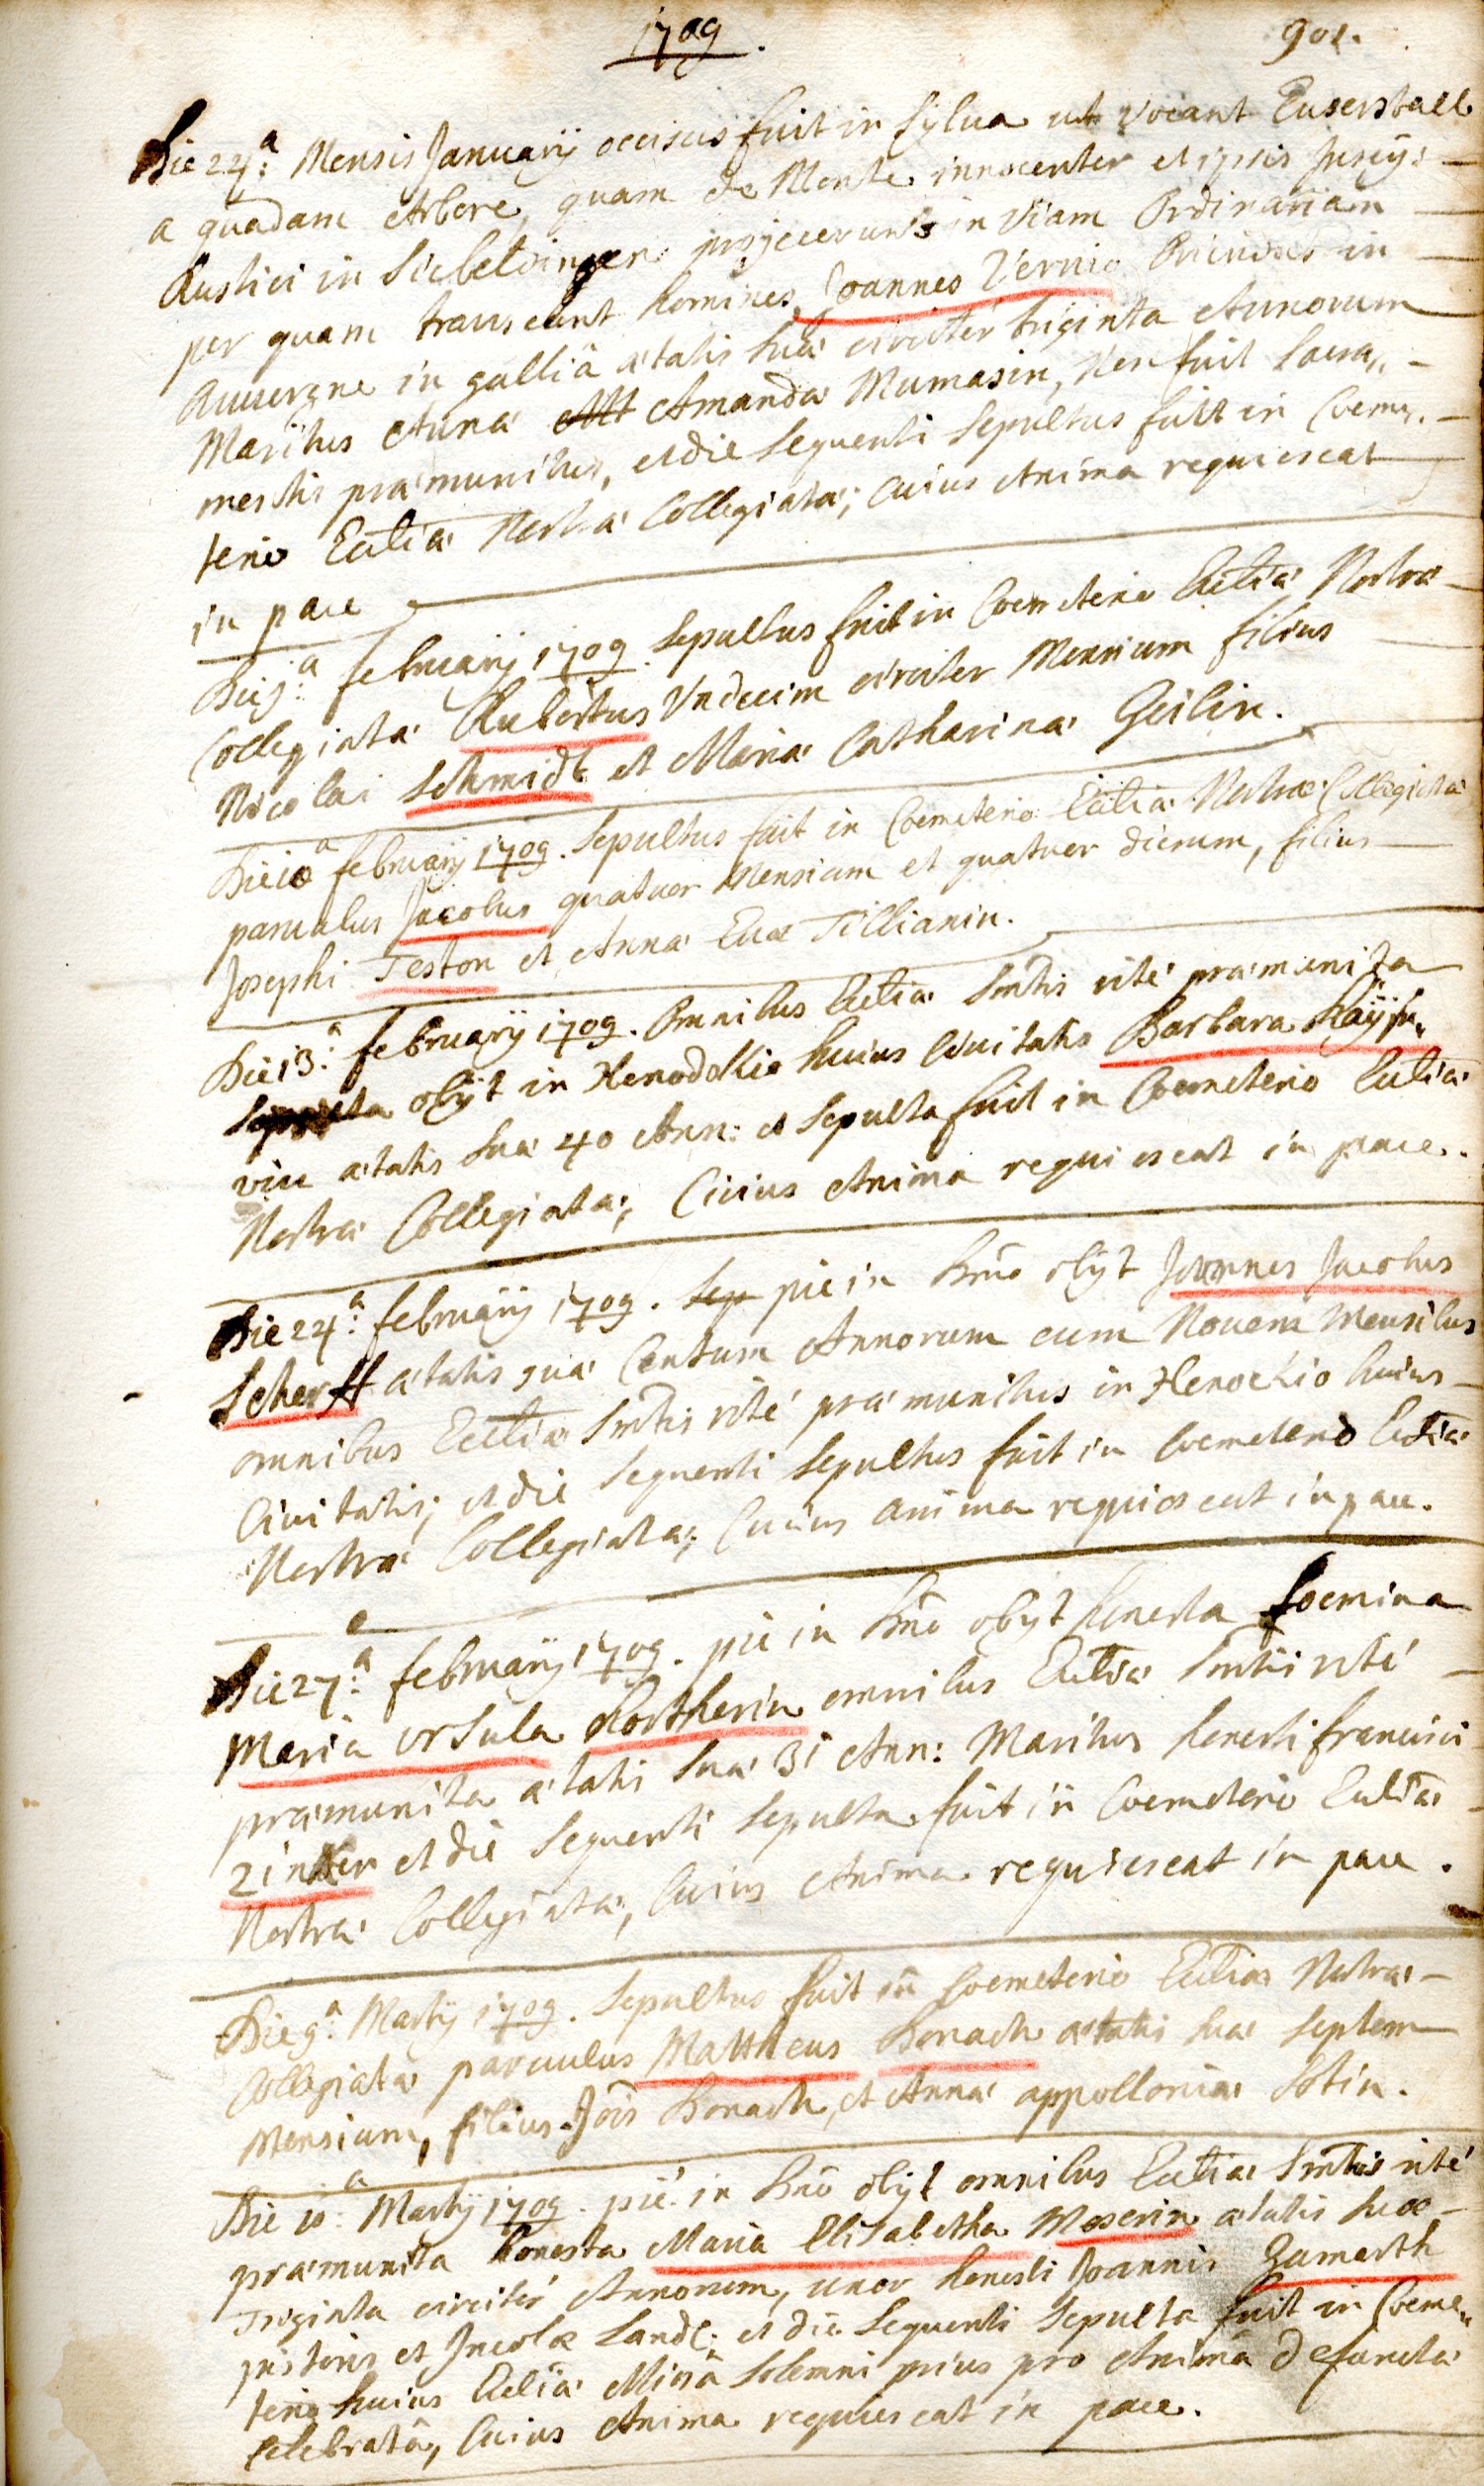 1709.
901.
Die 24.a Mensis Januarÿ occisus fuit in sylva ut vocant Eusersball
a quadam Arbore, quam de Monte innocenter et ipsis Inscÿs
Rustici in Siebeldingen projecerunt in viam Ordinariam
per quam transeunt homines, Joannes Vernio Oriundus in
Auvergne in galliâ ætatis suæ circiter triginta Annorum
Maritus Annæ Amanda Mumasin, Non fuit Sacra„
mentis præmunitus, et die sequenti sepultus fuit in Coeme„
terio Ecclia Nostræ Collegiatæ; Cuius Anima requiescat
in pace
Die 9.a februarÿ 1709. Sepultus fuit in Coemeterio Ecclia Nostræ
Collegiatæ Rubertus Undecim circiter Mensium filius
Nicolai Schmidt et Maria Catharina Geilin.
Die 10a februarÿ 1709. Sepultus fuit in Coemeterio Ecclia Nostræ Collegiatæ
parvulus Jacobus quatuor Mensium et quatuor dierum, filius
Josephi Teston et Anna Eva Tillianin.
Die 13.a februarÿ 1709. Omnibus Ecclia Smtis rité præmunita
obÿt in Xenodokio huius Civitatis Barbara Käÿse„
rin ætatis suæ 40 Ann: et sepulta fuit in Coemeterio Ecclia
Nostræ Collegiatæ; Cuius Anima requiescat in pace.
Die 24.a februarÿ 1709. Sep pie in Dno obÿt Joannes Jacobus
Scherff ætatis suæ Centum Annorum cum Novem Mensibus
omnibus Ecclia Smtis rité præmunitus in Xenockio huius
Civitatis; et die sequenti sepultus fuit in Coemeterio Ecclia
Nostræ Collegiatæ; Cuius anima requiescat in pace.
Die 27.a februarÿ 1709. pie in Dno obÿt honesta foemina
Maria Ursula Kortherin omnibus Ecclia Smtis rité
præmunita ætatis suæ 31 Ann: Maritus honesti francisci
Zinker et die sequenti sepulta fuit in Coemeterio Ecclia
Nostræ Collegiatæ, Cuius Anima requiescat in pace.
Die 9.a Martÿ 1709. Sepultus fuit in Coemeterio Ecclia Nostræ
Collegiatæ parvulus Mattheus Bonach ætatis suæ septem
Mensium, filius Jois Bonach, et Anna appollonia Sotin.
Die 10.a Martÿ 1709. pié in Dno obÿt omnibus Ecclia Smtis rité
præmunita honesta Maria Elisabetha Moserin ætatis suæ
Triginta circiter Annorum, uxor honesti Joannis Gumerth
pistoris et Incolæ Land: et die sequenti sepulta fuit in Coeme„
terio huius Ecclia Missâ solemni prius pro Animâ defunctæ
celebratâ, Cuius Anima requiescat in pace.